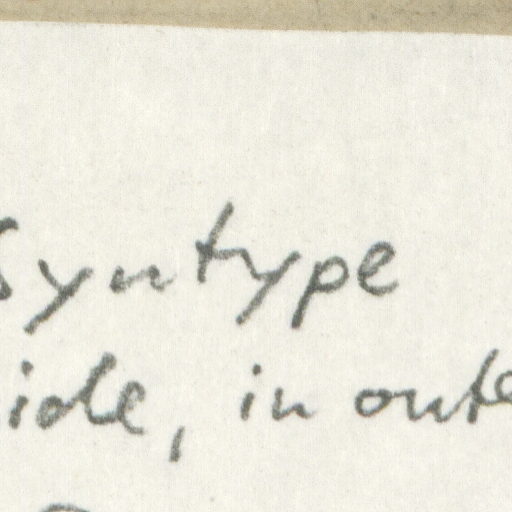 Syntype
ide, in oute